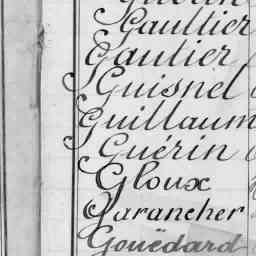 Guérin
Gaultier
Gautier
Guisnel
Guillaum
Guérin
Gloux
Garancher
Gouëdard